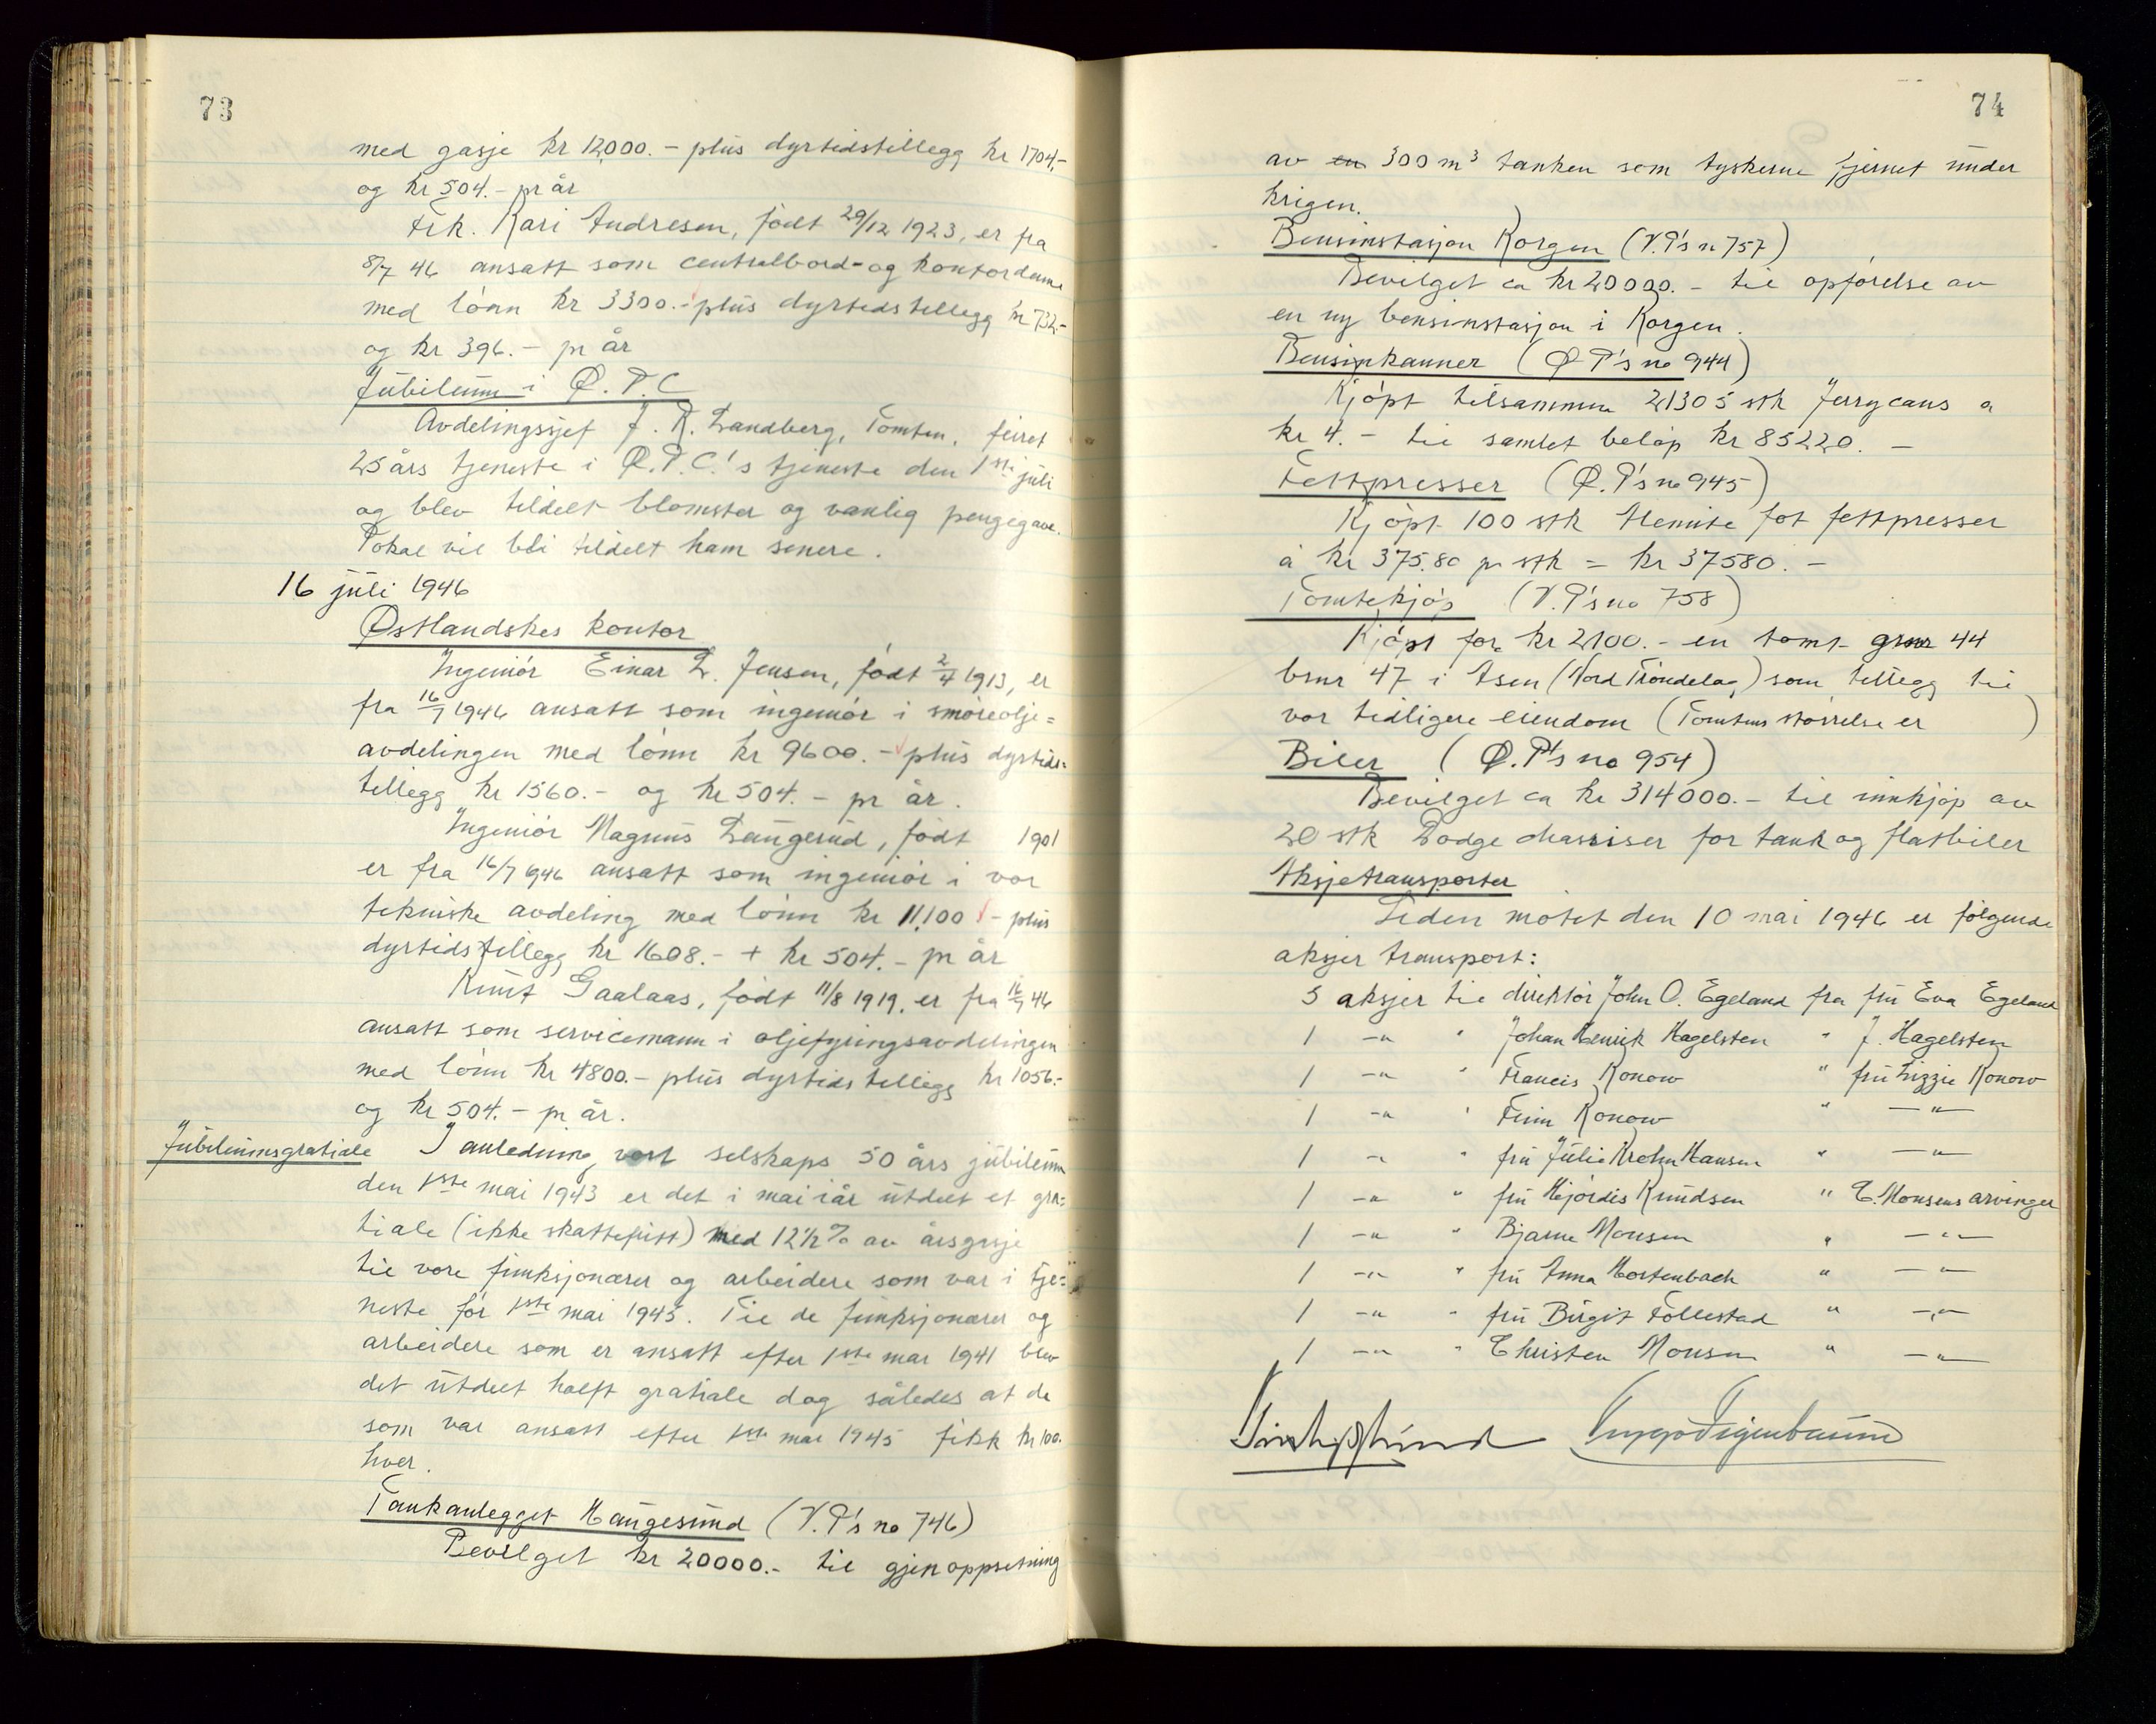 73
med gasje kr 12000.- plus dyrtidstillegg kr 1704,-
og kr 504.- pr år
Frk. Kari Andresen, født 29/12 1923, er fra
8/7 46 ansatt som centralbord- og kontordame
med lønn kr 3300.- plus dyrtidstillegg kr 732.-
og kr 396.- pr år
Jubileum i Ø.P.C
Avdelingssjef J. R. Landberg, Tomten, feiret
25 års tjeneste i Ø.P.C.'s tjeneste den 1ste juli
og blev tildelt blomster og vanlig pengegave.
Pokal vil bli tildelt ham senere.
16 juli 1946
Østlandskes kontor
Ingeniør Einar L. Jensen, født 2/4 1913, er
fra 16/7 1946 ansatt som ingeniør i smøreolje=
avdelingen med lønn kr 9600.- plus dyrtids=
tillegg kr 1560.- og kr 504.- pr år.
Ingeniør Magnus Langerud, født 1901
er fra 16/7 1946 ansatt som ingeniør i vor
tekniske avdeling med lønn kr 11,100 - plus
dyrtidstillegg kr 1608.- + kr 504.- pr år
Knut Gaalaas, født 11/8 1919, er fra 16/7 46
ansatt som servicemann i oljefyringsavdelingen
med lønn kr 4800.- plus dyrtidstillegg kr 1056.-
og kr 504.- pr år.
Jubileumsgratiale I anledning vort selskaps 50 års jubileum
den 1ste mai 1943 er det i mai iår utdelt et gra=
tiale (ikke skattefritt) med 12½% av årsgasje
til vore funksjonærer og arbeidere som var i tje=
neste før 1ste mai 1943. Til de funksjonærer og
arbeidere som er ansatt efter 1ste mai 1941 blev
det utdelt halft gratiale dog således at de
som var ansatt efter 1ste mai 1945 fikk kr 100.
hver.
Tankanlegget Haugesund (V.P's no 746)
Bevilget kr 20000.- til gjenoppsetning
74
av en 300 m³ tanken som tyskerne fjernet under
krigen.
Bensinstasjon Korgen (V.P's no 757)
Bevilget ca kr 20000.- til opførelse av
en ny bensinstasjon i Korgen.
Bensinkanner (Ø P's no 944)
Kjøpt tilsammen 21305 stk Jerrycans a
kr 4.- til samlet beløp kr 85220.-
Fettpresser (Ø.P's no 945)
Kjøpt 100 stk Alemite fot fettpresser
à kr 375.80 pr stk = kr 37580.-
Tomtekjøp (V.P's no 758)
Kjøpt for kr 2100.- en tomt grnr 44
brnr 47 i Åsen (Nord Trøndelag) som tillegg til
vor tidligere eiendom (Tomtens størrelse er )
Biler (Ø.P's no 954)
Bevilget ca kr 314000.- til innkjøp av
20 stk Dodge chassiser for tank og flatbiler
Aksjetransporter
Siden møtet den 10 mai 1946 er følgende
aksjer transport:
5 aksjer til direktør John O. Egeland fra fru Eva Egeland
1 -"- " Johan Henrik Hagelsten " J. Hagelsten
1 -"- " Francis Konow " fru Lizzie Konow
1 -"- " Finn Konow " -"-
1 -"- " fru Julie Krohn Hansen " -"-
1 -"- " fru Hjørdis Knudsen " C. Monsens arvinger
1 -"- " Bjarne Monsen " -"-
1 -"- " fru Anna Mortenbach " -"-
1 -"- " fru Birgit Follestad " -"-
1 -"- " Christen Monsen " -"-